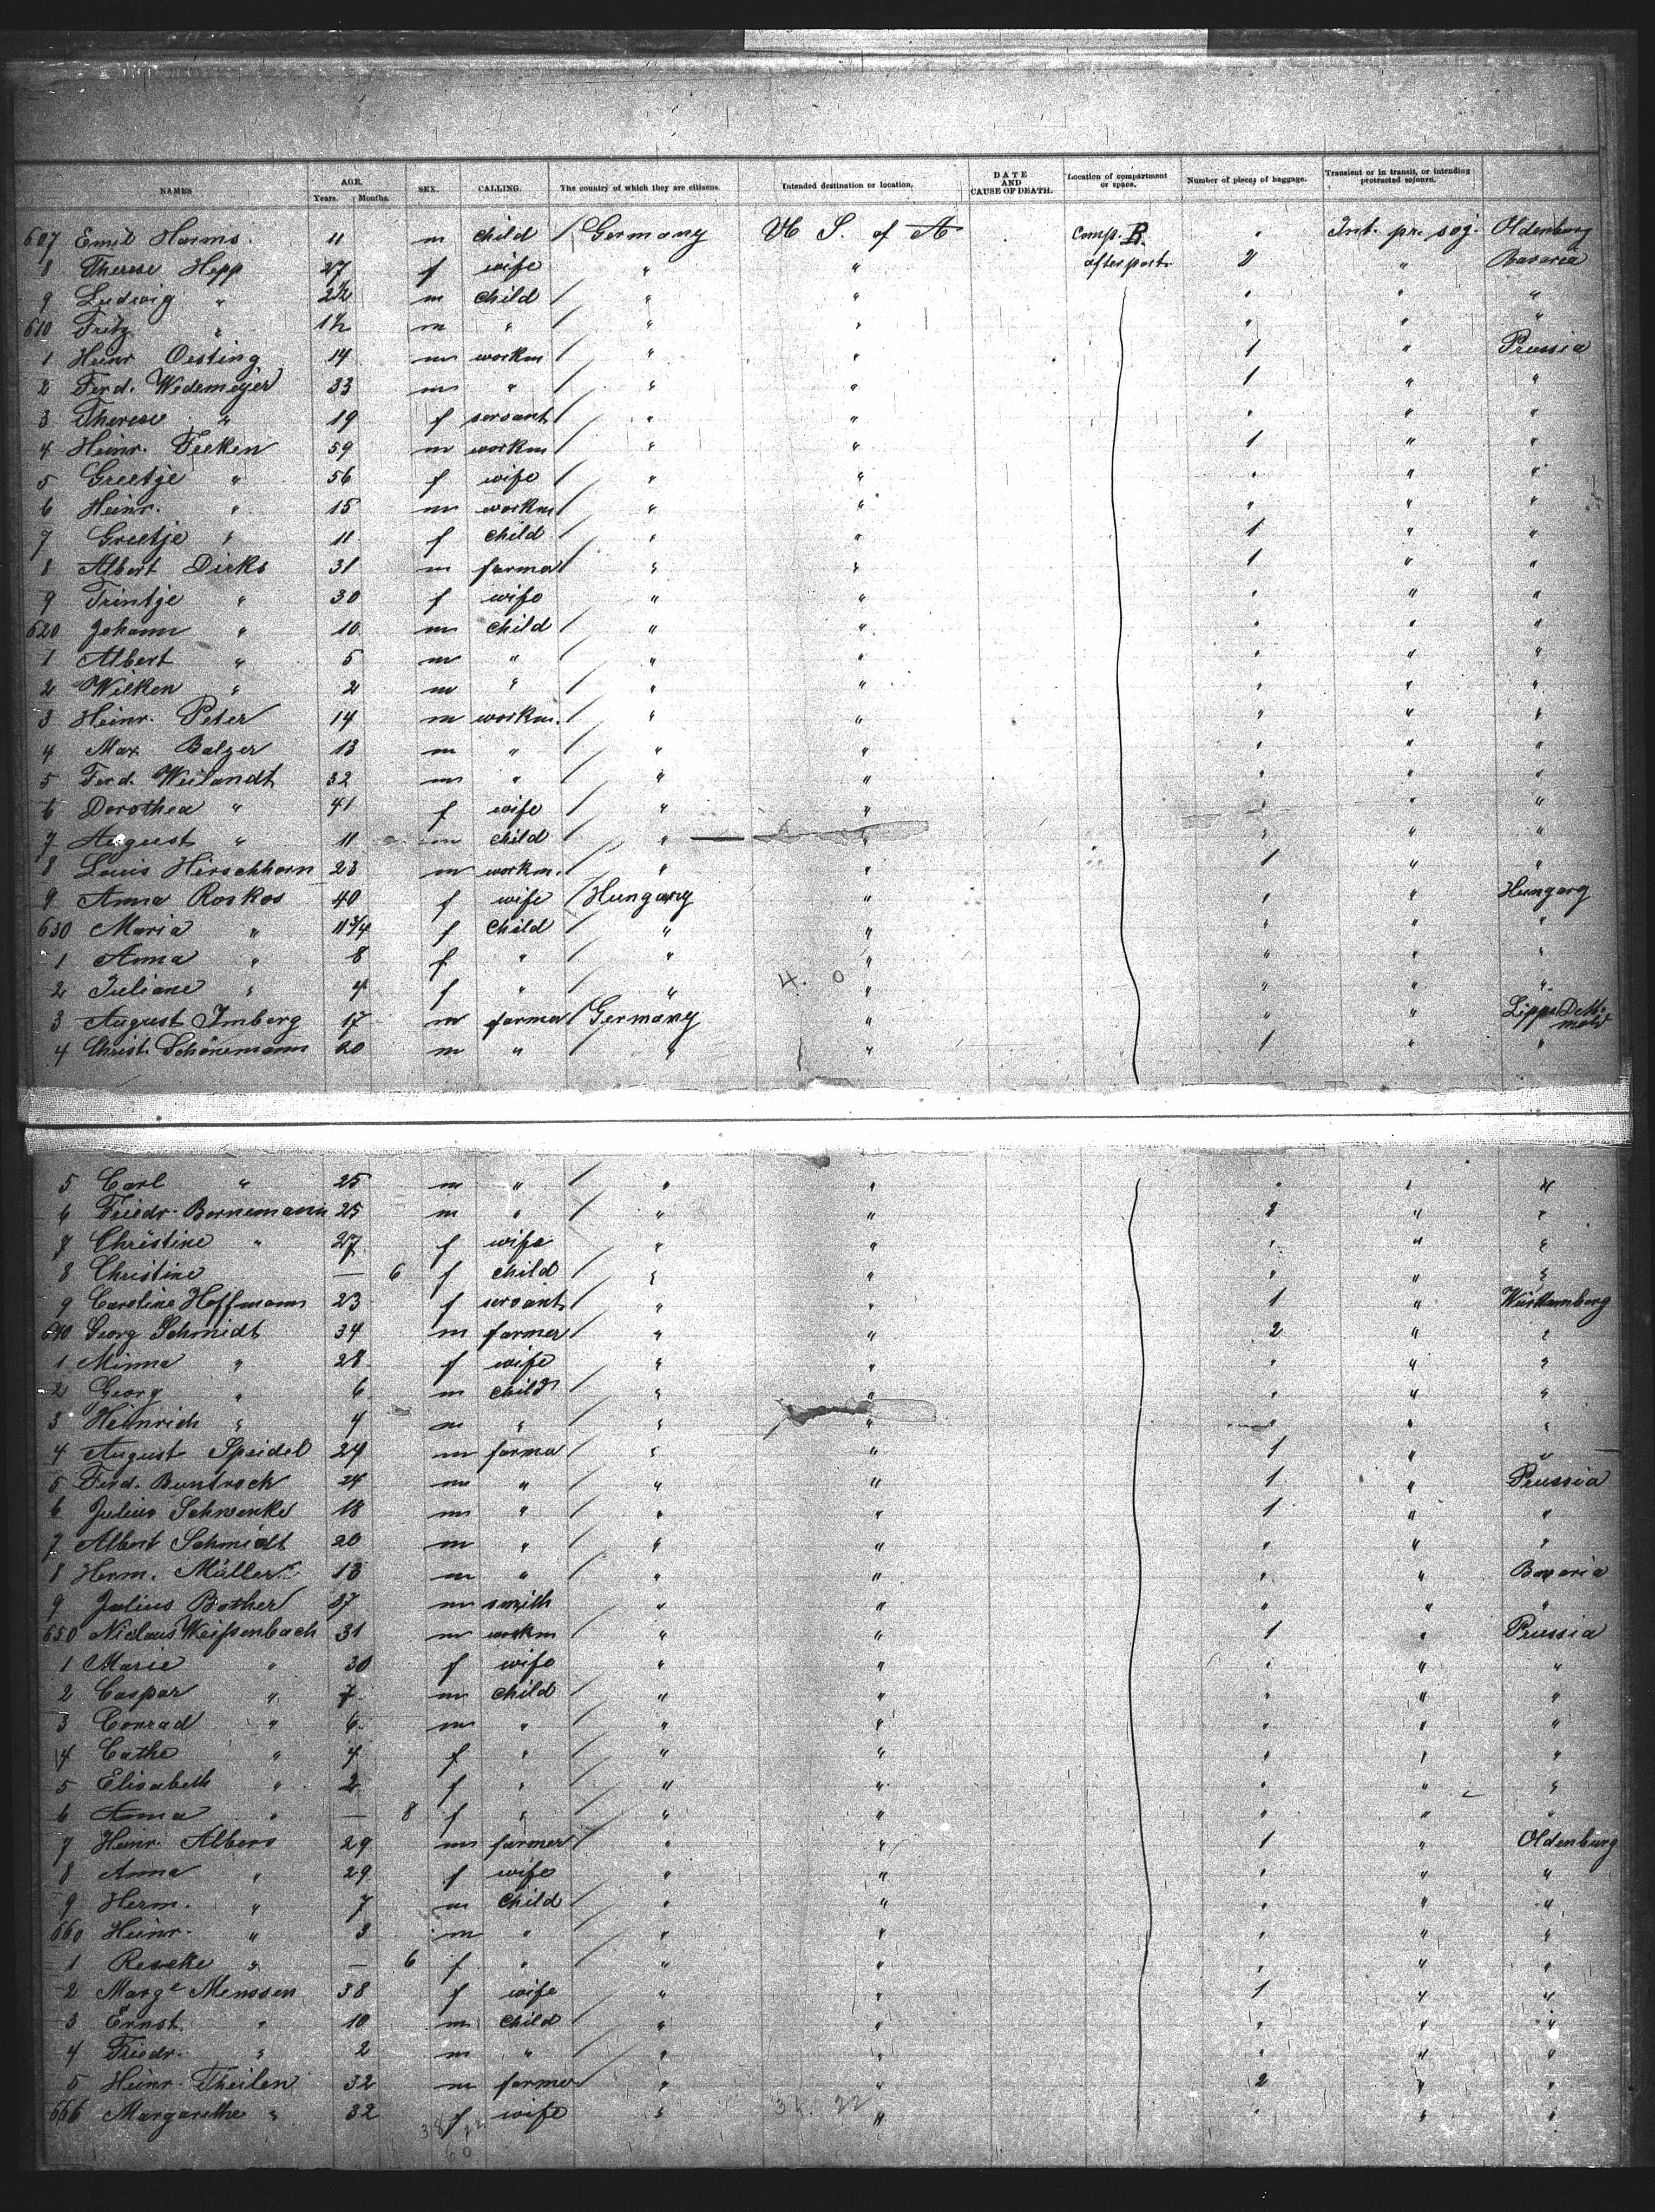 NAMES AGE. Years. Months. SEX. CALLING. The country of which they are citizens. Intended destination or location. DATE AND CAUSE OF DEATH. Location of compartment or space. Number of pieces of baggage. Transient or in transit, or intending protracted sojourn.
607 Emil Harms. 11 m child Germany U S. of A comp. B. " Int. pr. soj. Oldenburg
8 Therese Hepp 27 f wife " " after part. 2 " Bavaria
9 Ludwig " 2½ m child " " " " "
610 Fritz " 1½ m " " " " " "
1 Heinr Oesting 14 m workm " " 1 " Prussia
2 Ferd. Wedemeyer 33 m " " " 1 " "
3 Therese " 19 f servant " " " " "
4 Heinr. Feeken 59 m workm " " 1 " "
5 Greetje " 56 f wife " " " " "
6 Heinr. " 15 m workm " " " " "
7 Greetje " 11 f child " " 1 " "
8 Albert Dirks 31 m farmer " " 1 " "
9 Trintje " 30 f wife " " " " "
620 Johann " 10 m child " " " " "
1 Albert " 5 m " " " " " "
2 Wilken " 2 m " " " " " "
3 Heinr. Peter 14 m workm. " " " " "
4 Max Balzer 13 m " " " " " "
5 Ferd. Weilandt 32 m " " " " " "
6 Dorothea " 41 f wife " " " " "
7 August " 11 m child " " " " "
8 Louis Hirschhorn 23 m workm. " " 1 " "
9 Anna Roskos 40 f wife Hungary " " " Hungary
630 Maria " 11¾ f child " " " " "
1 Anna " 8 f " " " " " "
2 Juliane " 4 f " " " " " "
3 August Imberg 17 m farmer Germany " " " Lippe Dettmold
4 Christ. Schönemann 20 m " " " 1 " "
5 Carl " 25 m " " " " " "
6 Friedr. Bornemann 25 m " " " 2 " "
7 Christine " 27 f wife " " " " "
8 Christine — 6 f child " " " " "
9 Caroline Hoffmann 23 f servant " " 1 " Württemberg
640 Georg Schmidt 34 m farmer " " 2 " "
1 Minna " 28 f wife " " " " "
2 Georg " 6 m child " " " " "
3 Heinrich " 4 m " " " " " "
4 August Speidel 24 m farmer " " 1 " "
5 Ferd. Buntrock 24 m " " " 1 " Prussia
6 Julius Schwenke 18 m " " " 1 " "
7 Albert Schmidt 20 m " " " " " "
8 Herm. Müller 13 m " " " " " Bavaria
9 Julius Bother 37 m smith " " " " "
650 Niclaus Weißenbach 31 m workm " " 1 " Prussia
1 Marie " 30 f wife " " " " "
2 Caspar " 7 m child " " " " "
3 Conrad " 6 m " " " " " "
4 Cathe " 4 f " " " " " "
5 Elisabeth " 2 f " " " " " "
6 Anna " — 8 f " " " " " "
7 Heinr. Albers 29 m farmer " " 1 " Oldenburg
8 Anna " 29 f wife " " " " "
9 Herm. " 7 m child " " " " "
660 Heinr. " 3 m " " " " " "
1 " — 6 f " " " " " "
2 Marge Menssen 38 f wife " " 1 " "
3 Ernst " 10 m child " " " " "
4 Friedr. " 2 m " " " " " "
5 Heinr. Theilen 32 m farmer " " 2 " "
666 Margarethe " 32 f wife " " " " "